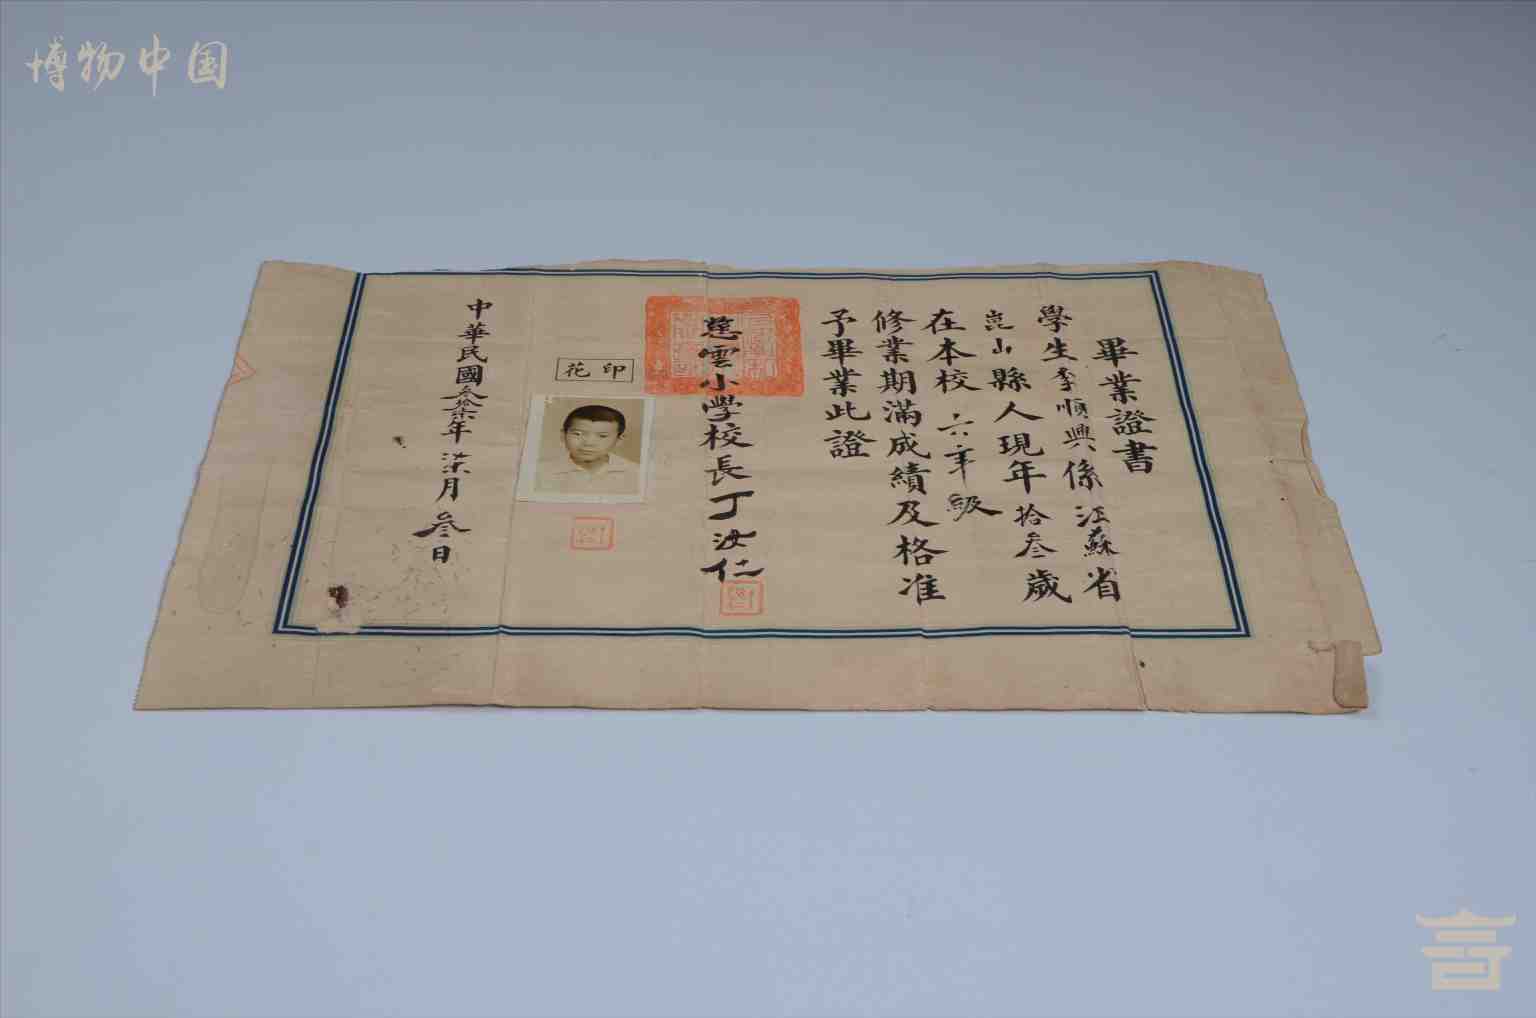 博物中国
畢業證書
學生李順興係江蘇省
崑山縣人現年拾叁歲
在本校六年級
修業期滿成績及格准
予畢業此證
慈雲小學校長丁汝仁
印花
中華民國叁拾柒年柒月叁日